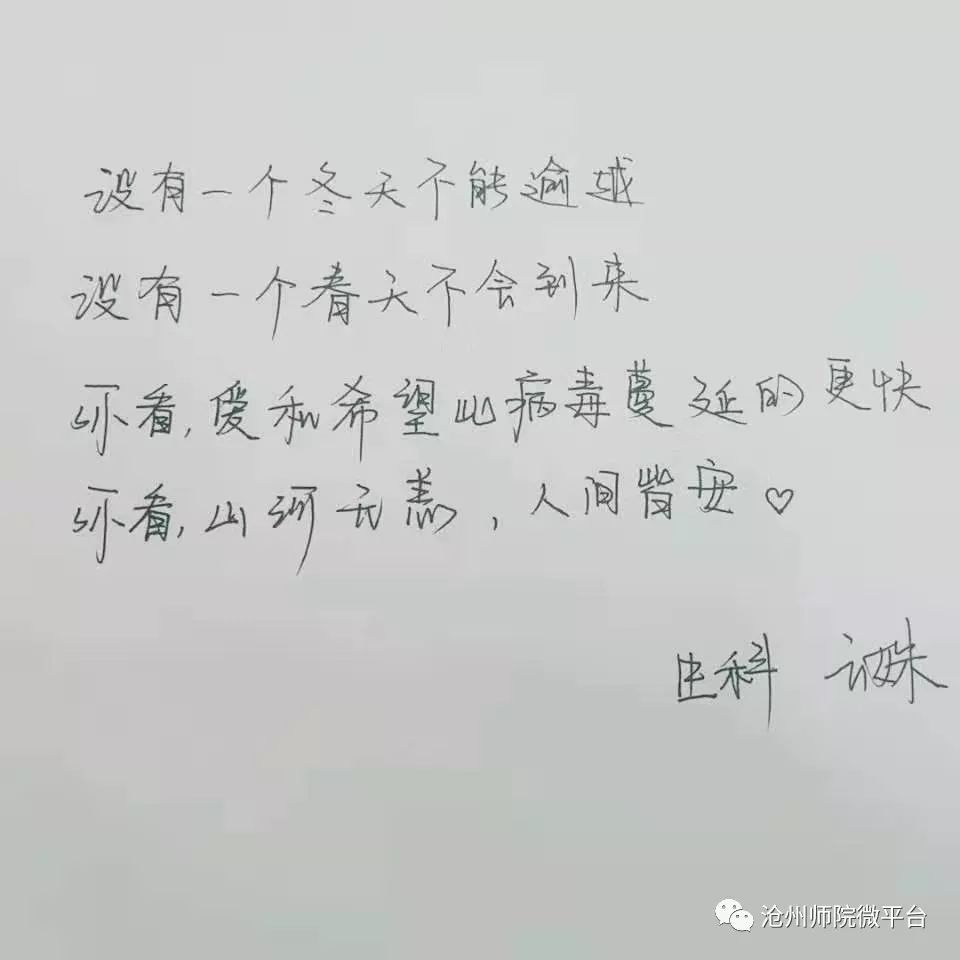 没有一个冬天不能逾越
没有一个春天不会到来
你看,爱和希望比病毒蔓延的更快
你看,山河无恙,人间皆安♡
生科
沧州师院微平台